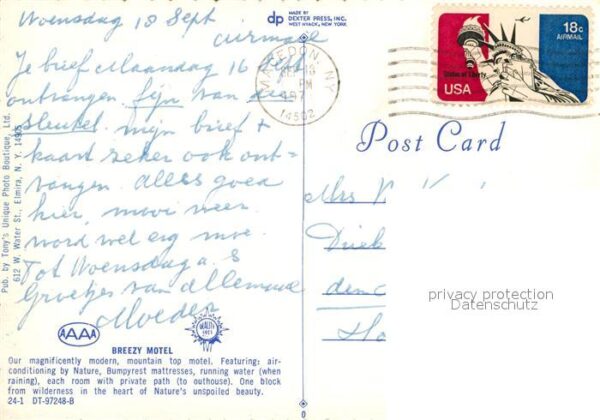 Woensdag 18 Sept
airmail
Je brief Maandag 16 Sept
ontvangen fijn van die
sleutel. mijn brief +
kaart zeker ook ont=
vangen. Alles goed
hier, mooi weer
word wel erg moe.
Tot Woensdag a.s
Groetjes van Allemaal
Moeder
Pub. by Tony's Unique Photo Boutique, Ltd.
612 W. Water St., Elmira, N. Y. 14905
dp
MADE BY
DEXTER PRESS, INC.
WEST NYACK, NEW YORK
MACEDON, NY
PM
14502
18c
AIRMAIL
Statue of Liberty
USA
Post Card
Mrs
den
privacy protection
Datenschutz
AAAA
BREEZY MOTEL
Our magnificently modern, mountain top motel. Featuring: air-
conditioning by Nature, Bumpyrest mattresses, running water (when
raining), each room with private path (to outhouse). One block
from wilderness in the heart of Nature's unspoiled beauty.
24-1 DT-97248-B